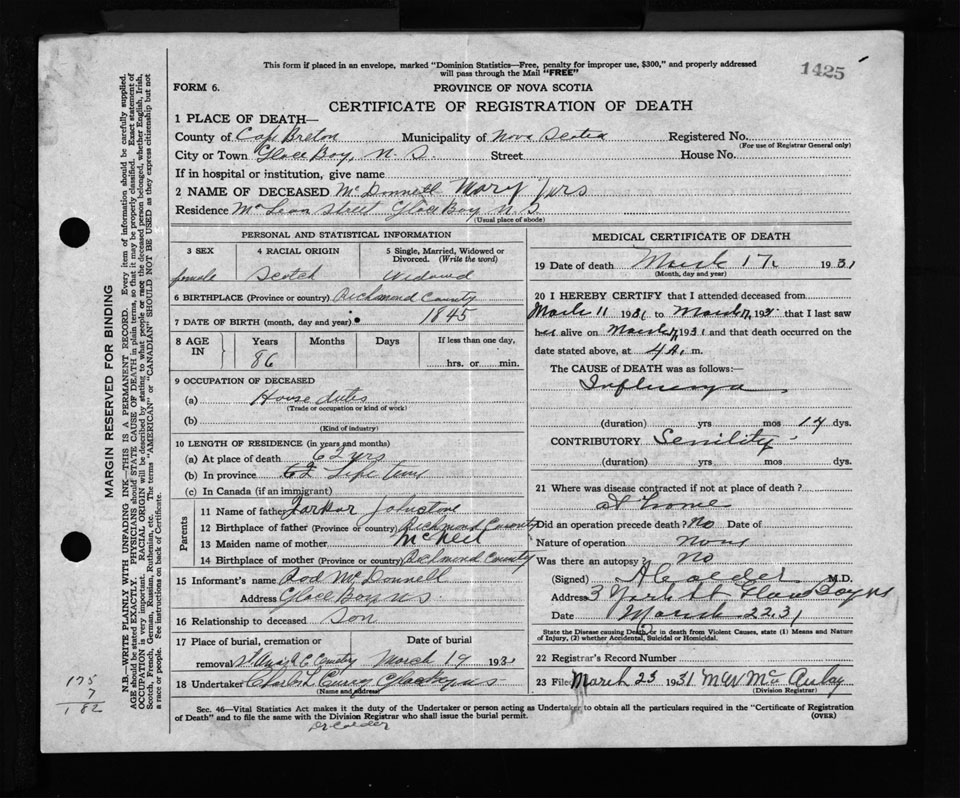 This form if placed in an envelope, marked "Dominion Statistics—Free, penalty for improper use, $300," and properly addressed
will pass through the Mail "FREE"
1425
FORM 6.
PROVINCE OF NOVA SCOTIA
CERTIFICATE OF REGISTRATION OF DEATH
1 PLACE OF DEATH—
County of Cape Breton Municipality of Nova Scotia Registered No.
(For use of Registrar General only)
City or Town Glace Bay, N. S. Street House No.
If in hospital or institution, give name
2 NAME OF DECEASED McDonnell Mary Mrs
Residence McLean Street Glace Bay N. S.
(Usual place of abode)
PERSONAL AND STATISTICAL INFORMATION
3 SEX 4 RACIAL ORIGIN 5 Single, Married, Widowed or Divorced. (Write the word)
female Scotch Widowed
6 BIRTHPLACE (Province or country) Richmond County
7 DATE OF BIRTH (month, day and year) 1845
8 AGE IN Years Months Days If less than one day,
86 hrs. or min.
9 OCCUPATION OF DECEASED
(a) House duties
(Trade or occupation or kind of work)
(b)
(Kind of industry)
10 LENGTH OF RESIDENCE (in years and months)
(a) At place of death 62 yrs
(b) In province Life time
(c) In Canada (if an immigrant)
Parents
11 Name of father Johnstone
12 Birthplace of father (Province or country) Richmond County
13 Maiden name of mother McNeil
14 Birthplace of mother (Province or country) Richmond County
15 Informant's name Rod McDonnell
Address Glace Bay NS
16 Relationship to deceased Son
17 Place of burial, cremation or Date of burial
removal St Cemetry March 19 1931
18 Undertaker Charles L Curry Glace Bay NS
(Name and address)
MEDICAL CERTIFICATE OF DEATH
19 Date of death March 17, 1931
(Month, day and year)
20 I HEREBY CERTIFY that I attended deceased from
March 11 1931 to March 17, 1931 that I last saw
her alive on March 17, 1931 and that death occurred on
date stated above, at 4 A. m.
The CAUSE of DEATH was as follows:—
Influenza
(duration) yrs mos 14 dys.
CONTRIBUTORY Senility
(duration) yrs mos dys.
21 Where was disease contracted if not at place of death?
at home
Did an operation precede death? No Date of
Nature of operation None
Was there an autopsy? No
(Signed) A Calder M.D.
Address 3 York St Glace Bay NS
Date March 22 31
State the Disease causing Death, or in death from Violent Causes, state (1) Means and Nature
of Injury, (2) whether Accidental, Suicidal or Homicidal.
22 Registrar's Record Number
23 Filed March 23 1931 M W McAulay
(Division Registrar)
Sec. 46—Vital Statistics Act makes it the duty of the Undertaker or person acting as Undertaker to obtain all the particulars required in the "Certificate of Registration
of Death" and to file the same with the Division Registrar who shall issue the burial permit. (OVER)
Dr Calder
MARGIN RESERVED FOR BINDING
N.B.—WRITE PLAINLY WITH UNFADING INK—THIS IS A PERMANENT RECORD. Every item of information should be carefully supplied.
AGE should be stated EXACTLY. PHYSICIANS should STATE CAUSE OF DEATH in plain terms, so that it may be properly classified. Exact statement of
OCCUPATION is very important. RACIAL ORIGIN will be described by stating to what people or race the deceased person belonged, whether English, Irish,
Scotch, French, German, Russian, Ruthenian, etc. The terms "AMERICAN" or "CANADIAN" SHOULD NOT BE USED as they express citizenship but not
a race or people. See instructions on back of Certificate.
175
7
182